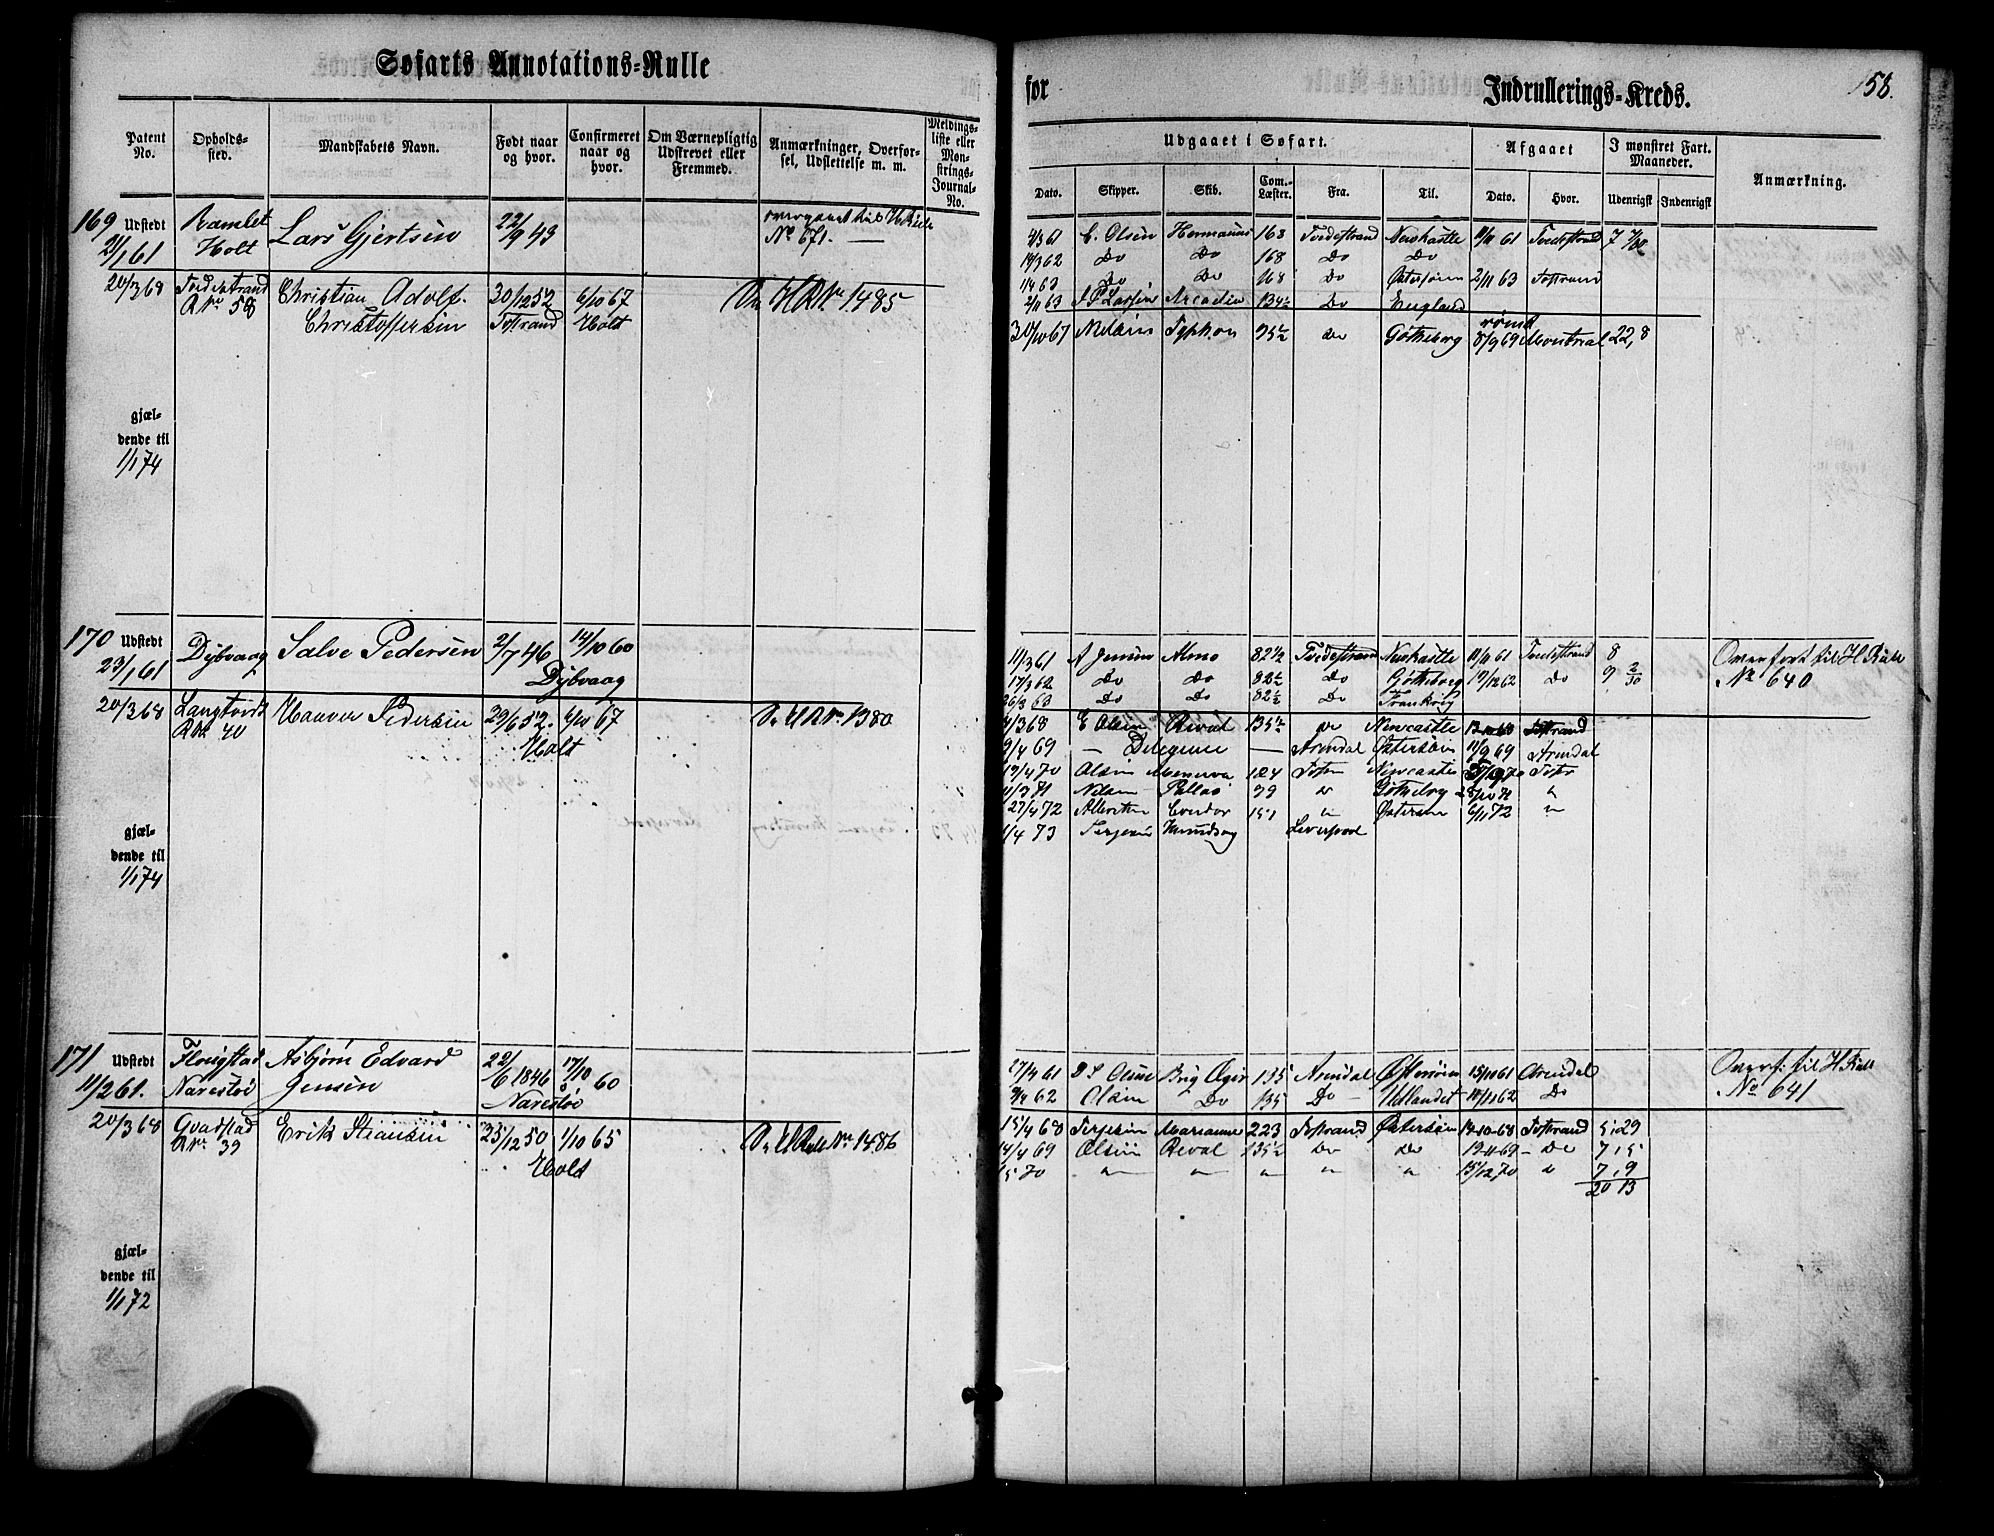 Søfarts Annotations-Rulle
for Indrullerings-Kreds. 158.
Patent No. Opholds-sted. Mandskabets Navn. Født naar og hvor. Confirmeret naar og hvor. Om Værnepligtig Udskrevet eller Fremmed. Anmærkninger, Overfør-sel, Udslettelse m. m. Meldings-liste eller Mon-strings-Journal-No.
Udgaaet i Søfart. Afgaaet I mønstret Fart. Maaneder. Anmærkning.
Dato. Skipper. Skib. Com.-Læster. Fra. Til. Dato. Hvor. Udenrigsk Indenrigsk
169 Udstedt Ramlet Lars Gjertsen 22/9 43 overgaaet til H Rulle
21/1 61 Holt No 671. —
4/3 61 C. Olsen Hermanus 168 Tvedestrand Newkastle 11/11 61 Tvedestrand 7
14/3 62 Do Do 168 Do Do
1/4 63 Do Do 168 Do Østersøen 2/11 63 Tostrand
2/11 63 Arcadia 134½ Do England
20/3 68 Tvedestrand Christian Adolf 30/12 52 6/10 67 H R No 1485
R No 58 Christoffersen Tostrand Holt
30/10 67 Nielsen Typhon 95½ do Gøtheborg rømt 8/9 69 Montreal 22,8
gjæl-
dende til
1/1 74
170 Udstedt Dybvaag Salve Pedersen 2/7 46 14/10 60
23/1 61 Dybvaag
11/3 61 A Jensen Alma 82½ Tvedestrand Newkastle 11/11 61 Tvedestrand 8 Overført til H Rulle
17/3 62 Do Do 82½ Do Gøtheborg 19/12 62 Do 9 2/30 No 640
26/3 63 Do Do 82½ Do Frankrig
20/3 68 Hanver Pedersen 29/6 52. 6/10 67 H R No 1380
R No 40 Holt
3/3 68 E Olsen Reval 135½ do Newcastle Tostrand
9/4 69 — Diligence — Arendal Østersøen 11/9 69 Arendal
19/4 70 Olsen Minerva 124 Newcastle
11/3 71 Nilsen Pallas 79 Gøtheborg
27/4 72 Condor 151 " Østersøen 6/11 72 "
1/4 73 Terjesen Liverpool
gjæl-
dende til
1/1 74
171 Udstedt Flougstad Asbjørn Edvard 22/6 1846 17/10 60
11/2 61. Narestø Jensen Narestø
27/4 61 Olsen Brig Øgir 135 Arendal Østersøen 15/11 61 Arendal Overf. til H Rulle
62 Olsen Do 135 Do Udlandet 18/11 62 Do No 641
20/3 68 Gvadstad Erik 25/12 50 1/10 65 No 1486
R No 39 Holt
15/4 68 Terjesen Marianne 223 Tostrand Østersøen 14-10-68 Tostrand 5,29
14/4 69 Olsen Reval 135½ do do 19-11-69 — Do 7,5
/5 70 " " " " " 15/12 70 " 7,9
20 13
gjæl-
dende til
1/1 72